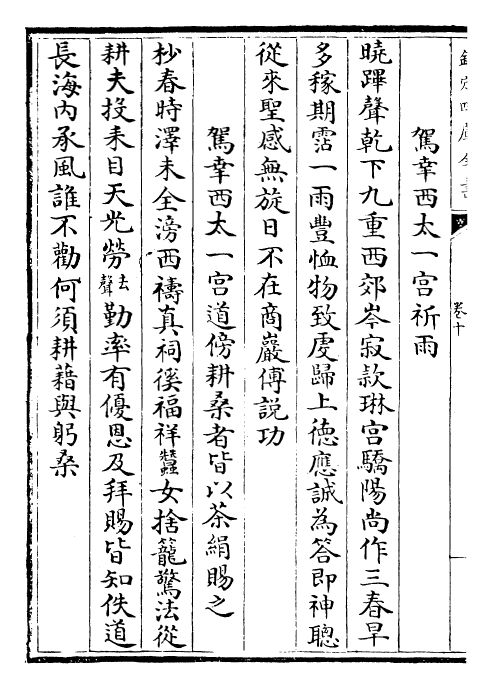 欽定四庫全書
卷十
駕幸西太一宮祈雨
曉蹕聲乾下九重西郊岑寂款琳宮驕陽尚作三春旱
多稼期霑一雨豐恤物致虔歸上徳應誠為答即神聰
從來聖感無旋日不在商巖傅説功
駕幸西太一宮道傍耕桑者皆以茶絹賜之
杪春時澤未全滂西禱真祠徯福祥蠶女捨籠驚法從
耕夫投耒目天光勞去聲勤率有優恩及拜賜皆知佚道
長海内承風誰不勸何須耕藉與躬桑